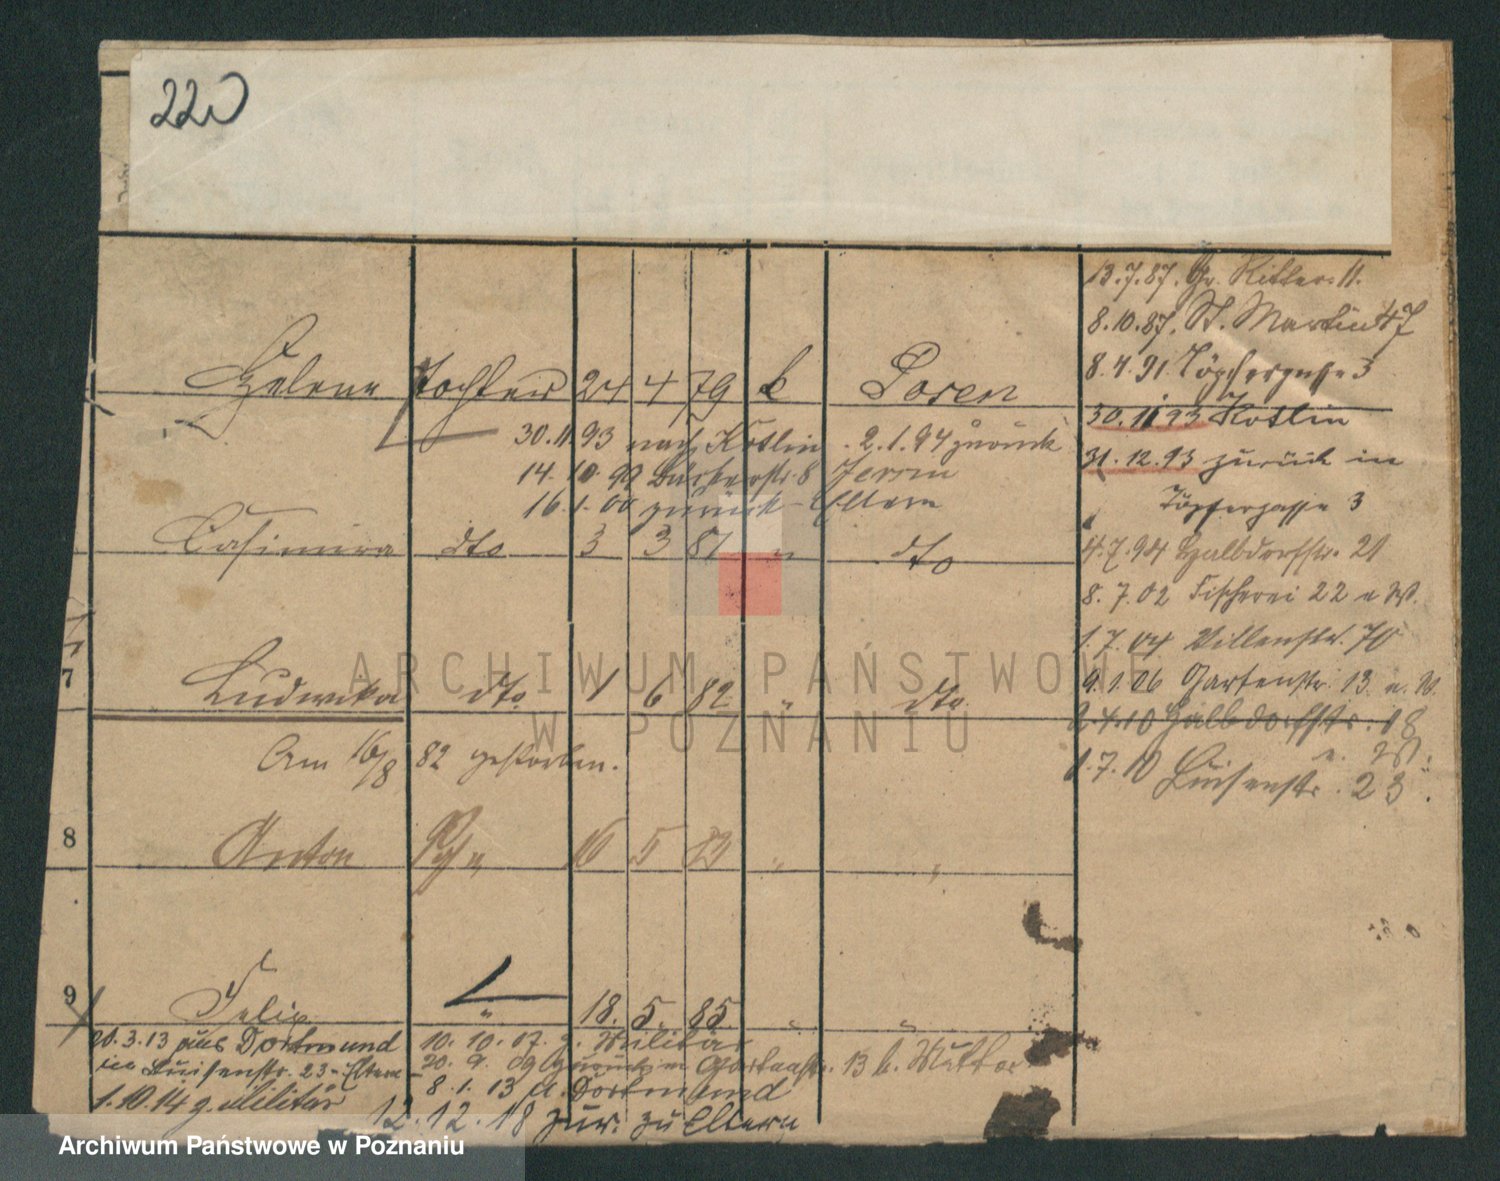 220
13.7.87. Gr. Ritter. 11.
8.10.87. St. Martin 47
Helene Tochter 24 4 79 k Posen
8.4.91 Töpfergasse 3
30.11.93 nach Kotlin 2.1.94 zurück
30.11.93 Kotlin
14. 10 99 8 Jersin
31.12.93 zurück in
16.1.00 zurück - Eltern
Töpfergasse 3
Casimira dto 3 3 81 " dto
4.7.94 Halbdorfstr. 21
8.7.02 Fischerei 22 a W.
1.7.04 70
7 Ludwika dto. 1 6 82 " dto.
9.1.06 Gartenstr. 13 a. W.
2.4.10 Halbdorfstr. 18
a. W.
Am 16/8 82 gestorben.
1.7.10 Luisenstr. 23.
8 Anton 16 5 83 " "
9 Felix " 18. 5. 85. " "
20.3.13 aus Dortmund
in Luisenstr. 23 - Eltern
1.10.14 z. Militär
10. 10. 07. z. Militär
20. 9. 09 zurück in Gartenstr. 13 b. Mutter
8.1.13 n. Dortmund
12.12.18 zur. zu Eltern
ARCHIWUM PAŃSTWOWE
W POZNANIU
Archiwum Państwowe w Poznaniu